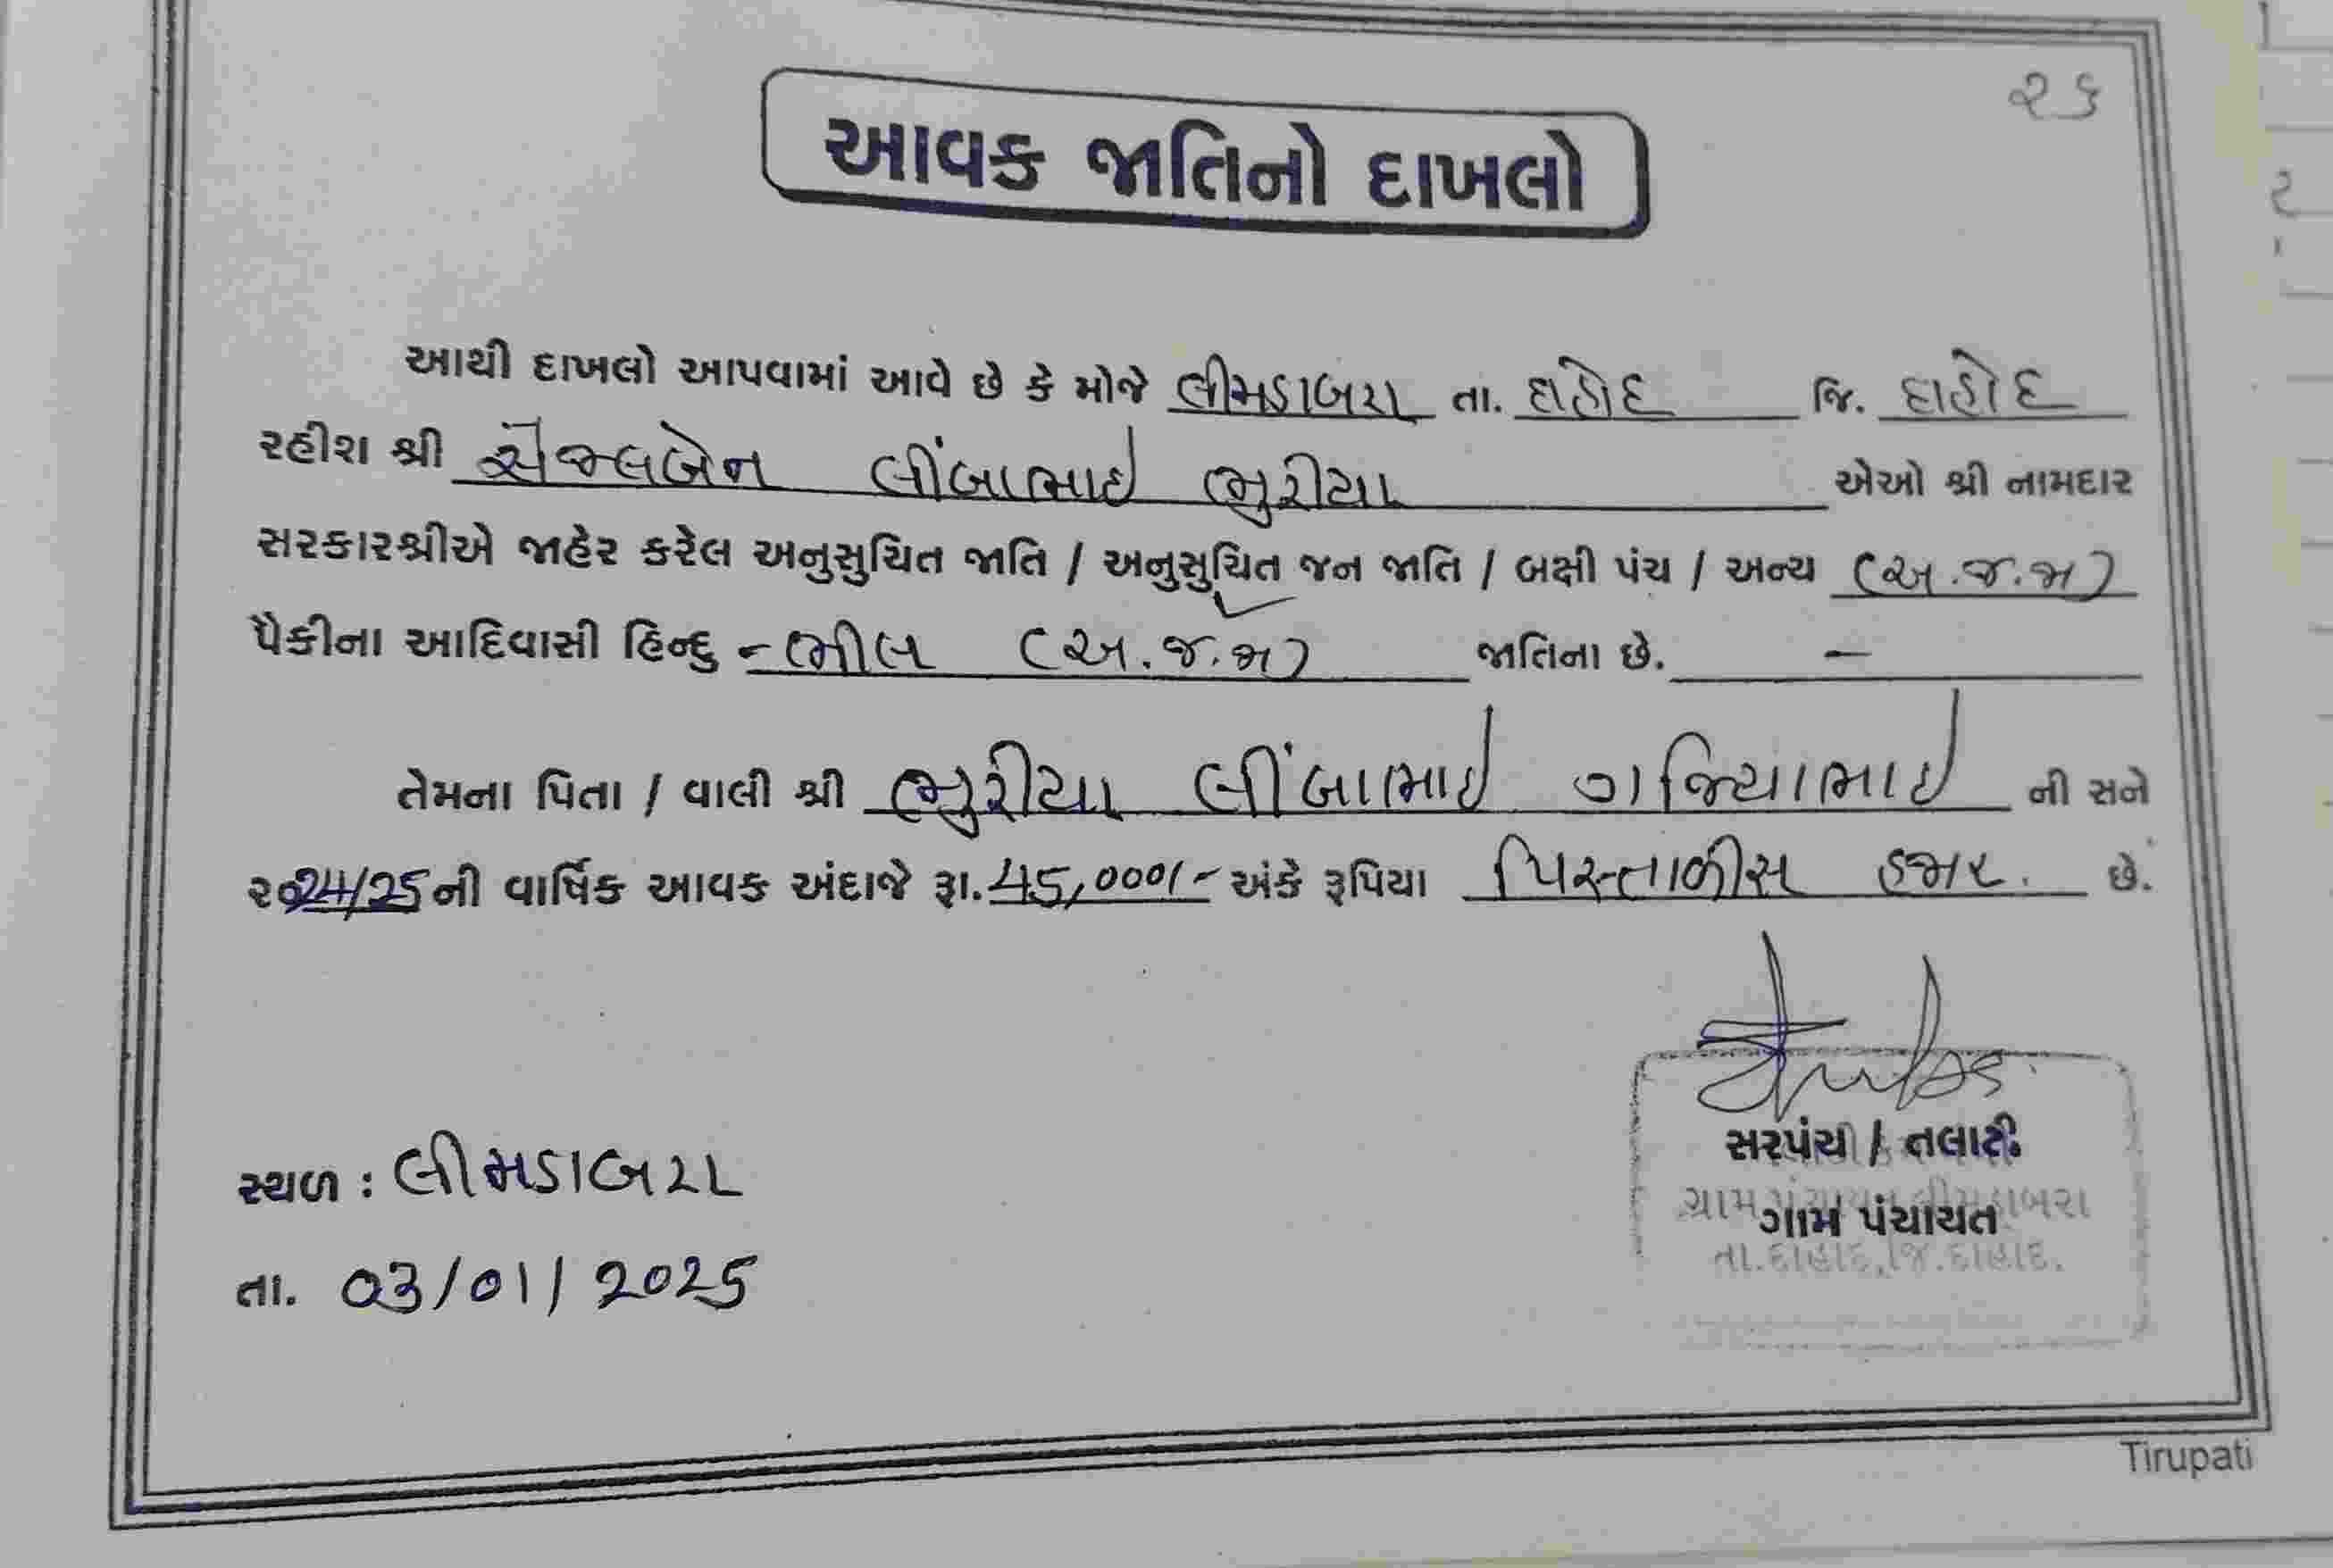 ૨૬
આવક જાતિનો દાખલો
આથી દાખલો આપવામાં આવે છે કે મોજે લીમડાબરા તા. દાહોદ જિ. દાહોદ
રહીશ શ્રી સેજલબેન લીંબાભાઈ ભુરીયા એઓ શ્રી નામદાર
સરકારશ્રીએ જાહેર કરેલ અનુસુચિત જાતિ / અનુસુચિત જન જાતિ / બક્ષી પંચ / અન્ય (અ.જ.જા)
પૈકીના આદિવાસી હિન્દુ - ભીલ (અ.જ.જા) જાતિના છે. –
તેમના પિતા / વાલી શ્રી ભુરીયા લીંબાભાઈ ગજિયાભાઈ ની સને
૨૦24/25 ની વાર્ષિક આવક અંદાજે રૂા. 45,000/- અંકે રૂપિયા પિસ્તાળીસ હજાર. છે.
સરપંચ / તલાટી
સ્થળ : લીમડાબરા
ગ્રામ પંચાયત લીમડાબરા
ગામ પંચાયત
તા.દાહોદ, જિ.દાહોદ.
તા. 03/01/2025
Tirupati